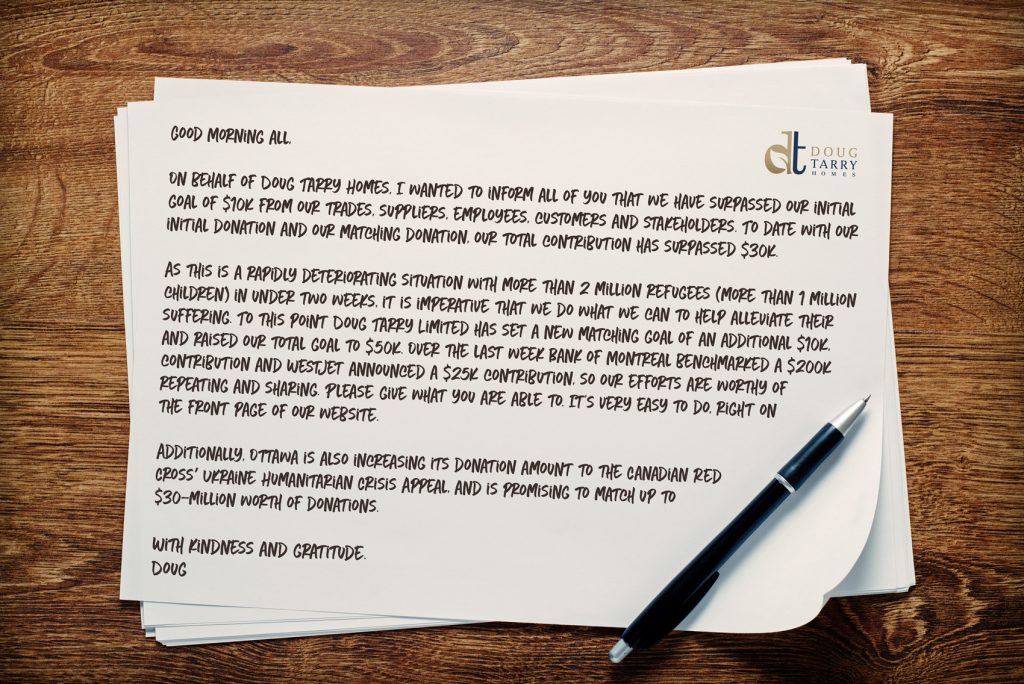 GOOD MORNING ALL,
DOUG
TARRY
HOMES
ON BEHALF OF DOUG TARRY HOMES, I WANTED TO INFORM ALL OF YOU THAT WE HAVE SURPASSED OUR INITIAL
GOAL OF $10K FROM OUR TRADES, SUPPLIERS, EMPLOYEES, CUSTOMERS AND STAKEHOLDERS. TO DATE WITH OUR
INITIAL DONATION AND OUR MATCHING DONATION, OUR TOTAL CONTRIBUTION HAS SURPASSED $30K.
AS THIS IS A RAPIDLY DETERIORATING SITUATION WITH MORE THAN 2 MILLION REFUGEES (MORE THAN 1 MILLION
CHILDREN) IN UNDER TWO WEEKS, IT IS IMPERATIVE THAT WE DO WHAT WE CAN TO HELP ALLEVIATE THEIR
SUFFERING. TO THIS POINT DOUG TARRY LIMITED HAS SET A NEW MATCHING GOAL OF AN ADDITIONAL $10K,
AND RAISED OUR TOTAL GOAL TO $50K. OVER THE LAST WEEK BANK OF MONTREAL BENCHMARKED A $200K
CONTRIBUTION AND WESTJET ANNOUNCED A $25K CONTRIBUTION, SO OUR EFFORTS ARE WORTHY OF
REPEATING AND SHARING. PLEASE GIVE WHAT YOU ARE ABLE TO. IT'S VERY EASY TO DO, RIGHT ON
THE FRONT PAGE OF OUR WEBSITE.
ADDITIONALLY, OTTAWA IS ALSO INCREASING ITS DONATION AMOUNT TO THE CANADIAN RED
CROSS' UKRAINE HUMANITARIAN CRISIS APPEAL, AND IS PROMISING TO MATCH UP TO
$30-MILLION WORTH OF DONATIONS.
WITH KINDNESS AND GRATITUDE,
DOUG